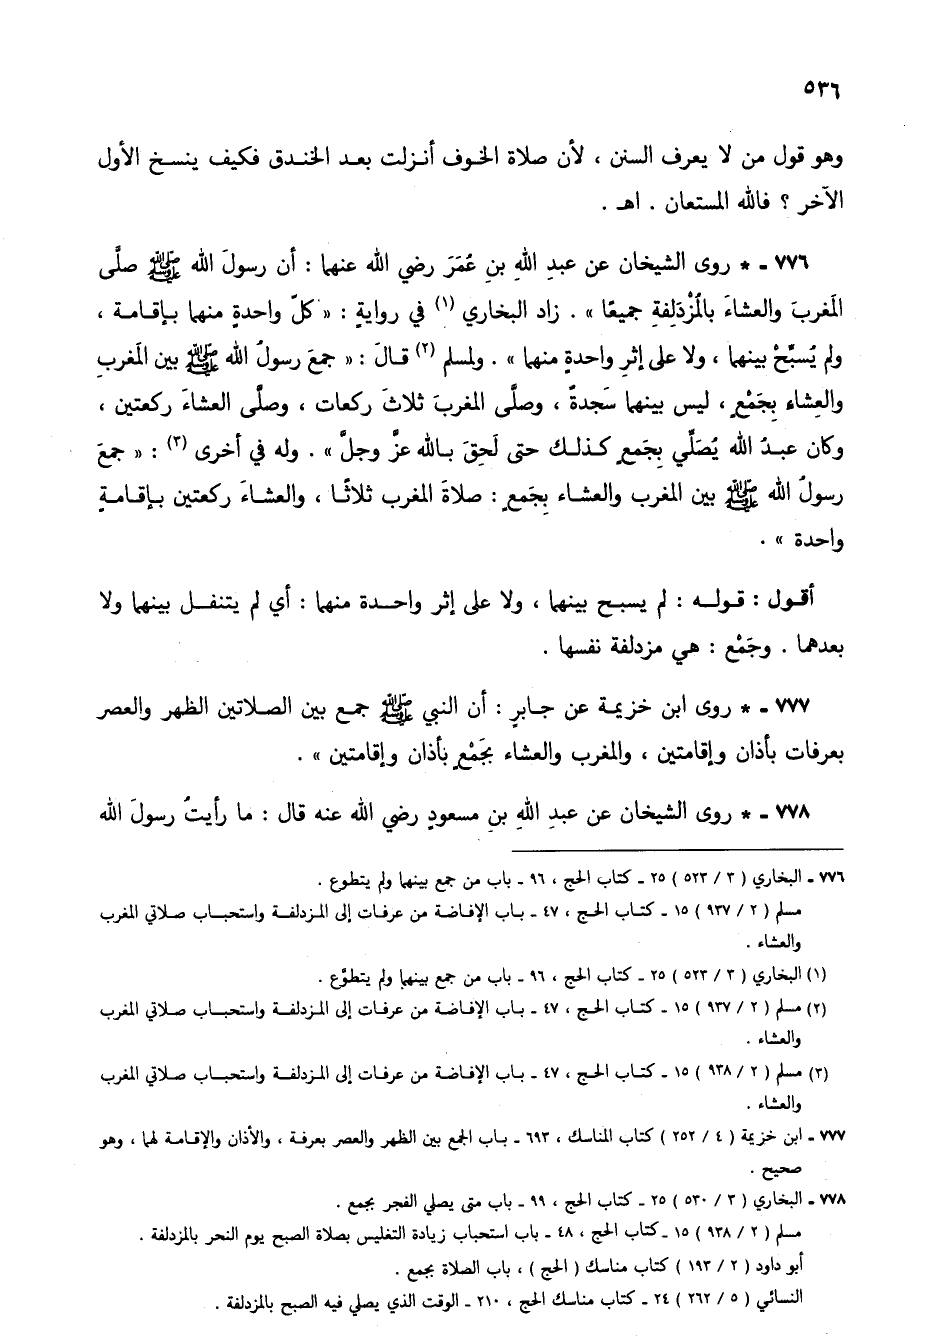 ٥٣٦
وهو قول من لا يعرف السنن ، لأن صلاة الخوف أنزلت بعد الخندق فكيف ينسخ الأول
الآخر ؟ فالله المستعان . اهـ .
٧٧٦ ـ * روى الشيخان عن عبدِ اللهِ بنِ عُمَرَ رضي الله عنهما : أن رسولَ الله ﷺ صلَّى
المغربَ والعشاءَ بالمُزْدَلِفةِ جميعًا » . زاد البخاري (١) في روايةٍ : « كلّ واحدةٍ منهما بـإقـامـة ،
ولم يُسبِّحْ بينهما ، ولا على إثرِ واحدةٍ منهما » . ولمسلم (٢) قـالَ : « جمعَ رسولُ الله ﷺ بين المغربِ
والعِشاءِ بِجَمْعٍ ، ليس بينهما سَجدةً ، وصلَّى المغربَ ثلاثَ ركعات ، وصلَّى العشاءَ ركعتين ،
وكان عبـدُ الله يُصَلِّي بِجَمعٍ كـذلـك حتى لَحِقَ بـالله عزَّ وجلَّ » . وله في أخرى (٣) : « جمعَ
رسولُ الله ﷺ بين المغرب والعشاء بِجَمعٍ : صلاةَ المغرب ثلاثًـا ، والعشاءَ ركعتين بـإقـامـةٍ
واحدة » .
أقـول : قـولـه : لم يسبح بينهما ، ولا على إثر واحـدة منهما : أي لم يتنفـل بينهما ولا
بعدهما . وجَمْع : هي مزدلفة نفسها .
٧٧٧ ـ * روى ابن خزيمة عن جـابرٍ : أن النبي ﷺ جمـع بين الصـلاتين الظهر والعصر
بعرفات بأذان وإقامتين ، والمغرب والعشاء بِجَمْعٍ بأذان وإقامتين » .
٧٧٨ ـ * روى الشيخان عن عبدِ اللهِ بنِ مسعودٍ رضي الله عنه قال : ما رأيتُ رسولَ الله
٧٧٦ ـ البخاري ( ٣ / ٥٢٣ ) ٢٥ ـ كتاب الحج ، ٩٦ ـ باب من جمع بينهما ولم يتطوع .
مسلم ( ٢ / ٩٣٧ ) ١٥ ـ كتـاب الحـج ، ٤٧ ـ بـاب الإفـاضـة من عرفـات إلى المـزدلفـة واستحبـاب صلاتي المغرب
والعشاء .
(١) البخاري ( ٣ / ٥٢٣ ) ٢٥ ـ كتاب الحج ، ٩٦ ـ باب من جمع بينهما ولم يتطوَّع .
(٢) مسلم ( ٢ / ٩٣٧ ) ١٥ ـ كتـاب الحـج ، ٤٧ ـ بـاب الإفـاضـة من عرفـات إلى المـزدلفـة واستحبـاب صلاتي المغرب
والعشاء .
(٣) مسلم ( ٢ / ٩٣٨ ) ١٥ ـ كتـاب الحـج ، ٤٧ ـ بـاب الإفـاضـة من عرفـات إلى المـزدلفـة واستحبـاب صلاتي المغرب
والعشاء .
٧٧٧ ـ ابن خزيمة ( ٤ / ٢٥٢ ) كتاب المناسك ، ٦٩٣ ـ بـاب الجمع بين الظهر والعصر بعرفة ، والأذان والإقـامـة لهما ، وهو
صحيح .
٧٧٨ ـ البخاري ( ٣ / ٥٣٠ ) ٢٥ ـ كتاب الحج ، ٩٩ ـ باب متى يصلي الفجر بجمع .
مسلم ( ٢ / ٩٣٨ ) ١٥ ـ كتاب الحج ، ٤٨ ـ باب استحباب زيادة التغليس بصلاة الصبح يوم النحر بالمزدلفة .
أبو داود ( ٢ / ١٩٣ ) كتاب مناسك ( الحج ) ، باب الصلاة بجمع .
النسائي ( ٥ / ٢٦٢ ) ٢٤ ـ كتاب مناسك الحج ، ٢١٠ ـ الوقت الذي يصلي فيه الصبح بالمزدلفة .